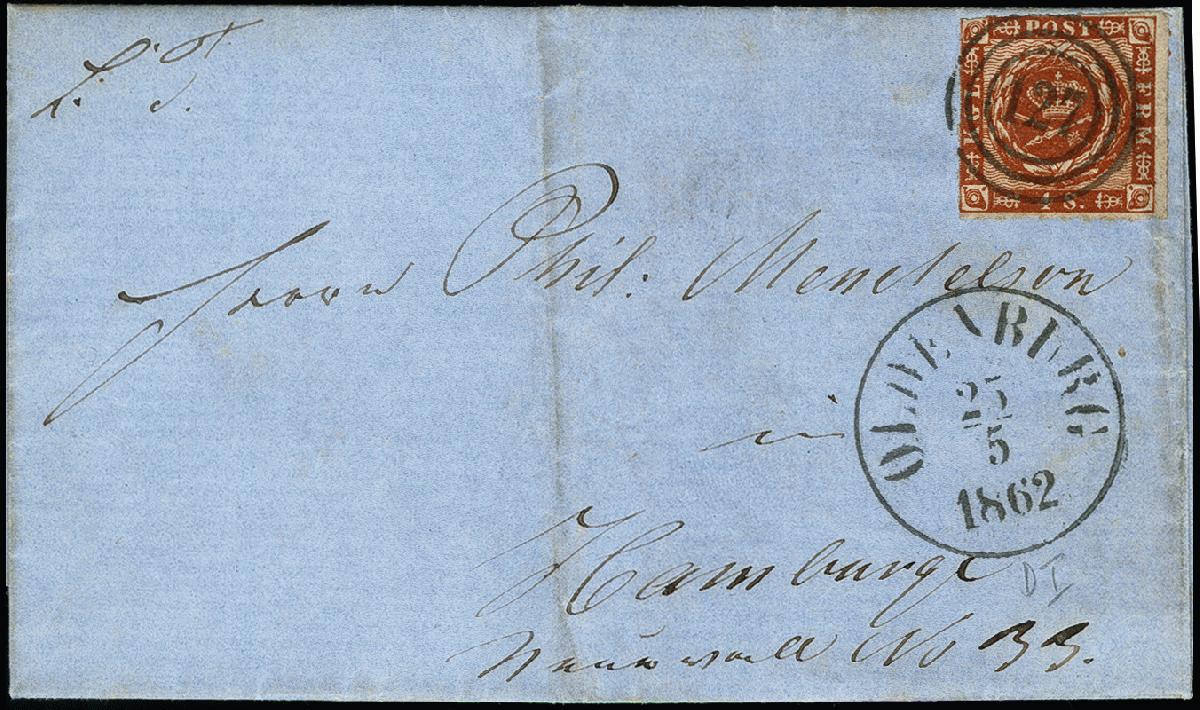 POST
KGL
FRM.
4 S.
127
Herrn Phil: Mendelson
in
Hamburg
Neuerwall No 33.
OLDENBURG
25
5
1862
DI